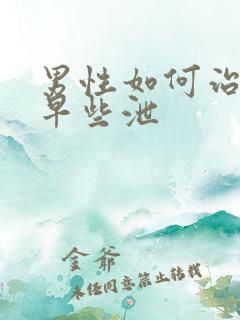 男性如何治
早些泄
金爷
未经同意禁止转载